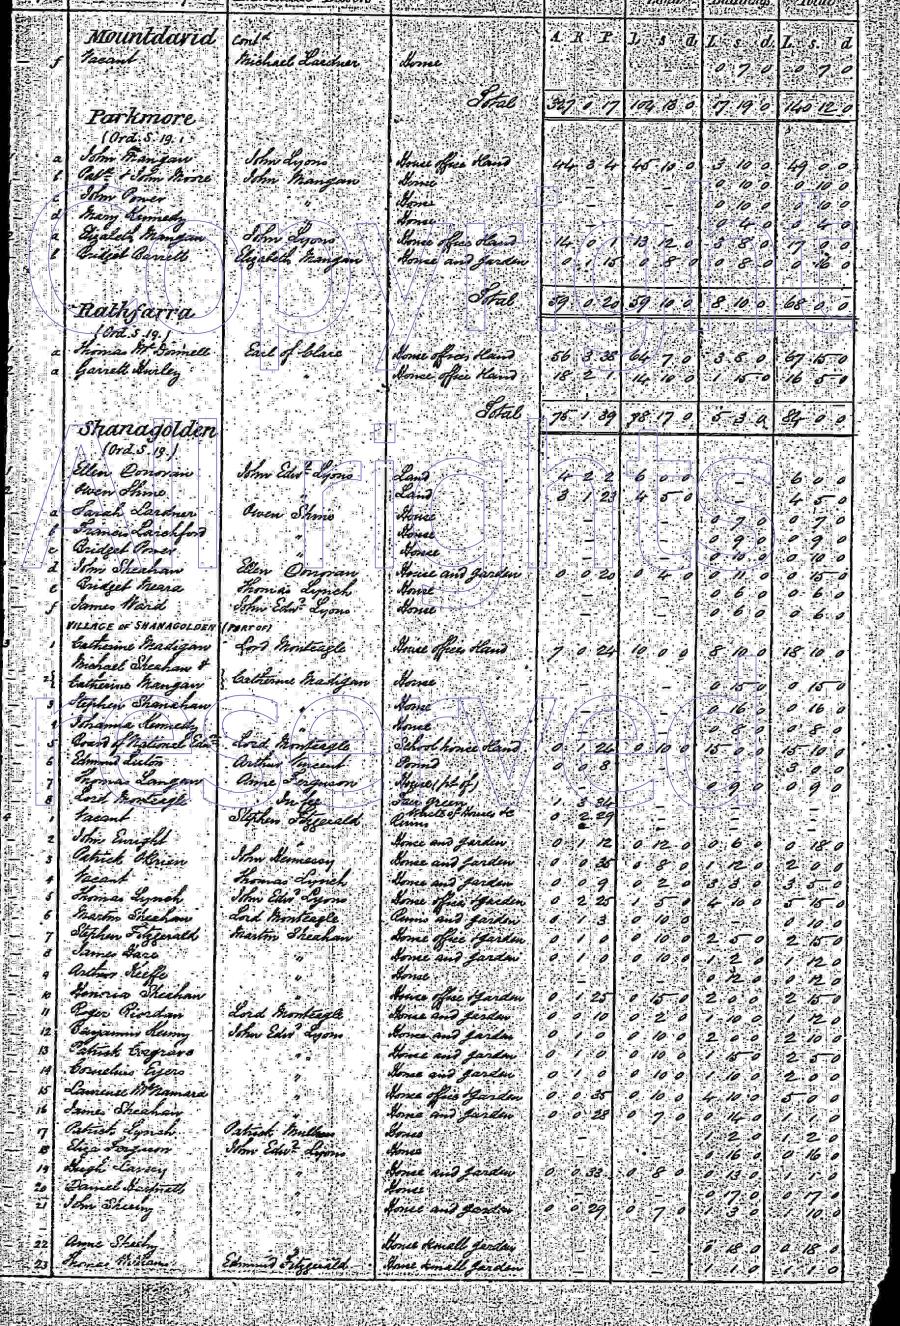 Mountdavid Contd A R P L s d L s. d. L s. d
f Vacant Michael Lardner House — — — 0 7 0 0 7 0
Total 327 0 17 104 18 0 17 19 0 140 12 0
Parkmore
(Ord. S. 19.
a John Mangan John Lyons House office & land 44 3 4 45 10 0 3 10 0 49 0 0
b Patk. & John Moore John Mangan House — — 0 10 0 0 10 0
c John Power " House — — 0 10 0 0 10 0
d Mary Kennedy " House — — 0 4 0 0 4 0
2 a Elizabeth Mangan John Lyons House offices & land 14 0 1 13 12 0 3 8 0 17 0 0
b Bridget Barrett Elizabeth Mangan House and garden 0 1 15 0 8 0 0 8 0 0 16 0
Total 59 0 20 59 10 0 8 10 0 68 0 0
Rathfarra
(Ord. S. 19.)
a Thomas McDonnell Earl of Clare House offices & land 56 3 38 64 7 0 3 8 0 67 15 0
2 a Garrett Hurley " House office & land 18 2 1 14 10 0 1 15 0 16 5 0
Total 75 1 39 78 17 0 5 3 0 84 0 0
Shanagolden
(Ord. S. 19.)
1 Ellen Donovan John Edwd. Lyons Land 4 2 2 6 0 0 — 6 0 0
2 Owen Shine " Land 3 1 23 4 5 0 — 4 5 0
a Sarah Lardner Owen Shine House — — 0 7 0 0 7 0
b Francis Larchford " House — — 0 9 0 0 9 0
c Bridget Power " House — — 0 10 0 0 10 0
d John Sheahan Ellen Donovan House and garden 0 0 20 0 4 0 0 11 0 0 15 0
e Bridget Meara Thomas Lynch House — — 0 6 0 0 6 0
f James Ward John Edwd. Lyons House — — 0 6 0 0 6 0
VILLAGE OF SHANAGOLDEN (PART OF)
3 1 Catherine Madigan Lord Monteagle House offices & land 7 0 24 10 0 0 8 10 0 18 10 0
Michael Sheahan &
2 Catherine Mangan } Catherine Madigan House — — 0 15 0 0 15 0
3 Stephen Shanahan " House — — 0 16 0 0 16 0
4 Johanna Kennedy " House — — 0 8 0 0 8 0
5 Board of National Edn. Lord Monteagle School house & land 0 1 24 0 10 0 15 0 0 15 10 0
6 Edmund Arthur Vincent Pound 0 0 8 — — 3 0 0
7 Thomas Langan Anne Ferguson House (pt of) — — 0 9 0 0 9 0
8 Lord Monteagle In fee Fair green 1 3 34 — — —
4 1 Vacant Stephen Fitzgerald Waste of Houses &c Ruins 0 2 29 — — —
2 John Enright " House and garden 0 1 12 0 12 0 0 6 0 0 18 0
3 Patrick O'Brien John Hennessy House and garden 0 0 35 0 8 0 1 12 0 2 0 0
4 Vacant Thomas Lynch House and garden 0 0 9 0 2 0 3 3 0 3 5 0
5 Thomas Lynch John Edwd. Lyons House office & garden 0 2 25 1 5 0 4 10 0 5 15 0
6 Martin Sheahan Lord Monteagle Ruins and garden 0 1 3 0 10 0 — 0 10 0
7 Stephen Fitzgerald Martin Sheahan House office & garden 0 1 0 0 10 0 2 5 0 2 15 0
8 James " House and garden 0 1 0 0 10 0 1 2 0 1 12 0
9 Arthur Keeffe " House — — 0 12 0 0 12 0
10 Honoria Sheahan " House office & garden 0 1 25 0 15 0 2 0 0 2 15 0
11 Roger Riordan Lord Monteagle House and garden 0 0 10 0 2 0 1 10 0 1 12 0
12 Benjamin John Edwd. Lyons House and garden 0 1 0 0 10 0 2 0 0 2 10 0
13 Patrick " House and garden 0 1 0 0 10 0 1 15 0 2 5 0
14 Cornelius " House and garden 0 1 0 0 10 0 1 10 0 2 0 0
15 Laurence McNamara " House office & garden 0 0 35 0 10 0 4 10 0 5 0 0
16 James Sheahan " House and garden 0 0 28 0 7 0 0 14 0 1 1 0
17 Patrick Lynch Patrick House — — 1 2 0 1 2 0
18 Eliza Ferguson John Edwd. Lyons House — — 0 16 0 0 16 0
19 Hugh " House and garden 0 0 33 0 8 0 0 13 0 1 1 0
20 Daniel Hartnett " House — — 0 17 0 0 17 0
21 John Sheehy " House and garden 0 0 29 0 7 0 1 3 0 1 10 0
22 Anne Sheehy House & small garden — — 0 18 0 0 18 0
23 Thomas Edmund Fitzgerald House & small garden — — 1 1 0 1 1 0
Copyright
All rights
reserved